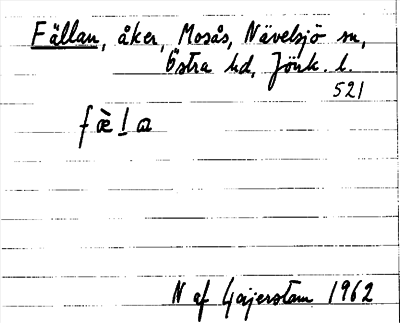 Fällan, åker, Mosås, Nävelsjö sn,
Östra hd, Jönk. l.
521
fæ̀l̲a
N af Geijerstam 1962